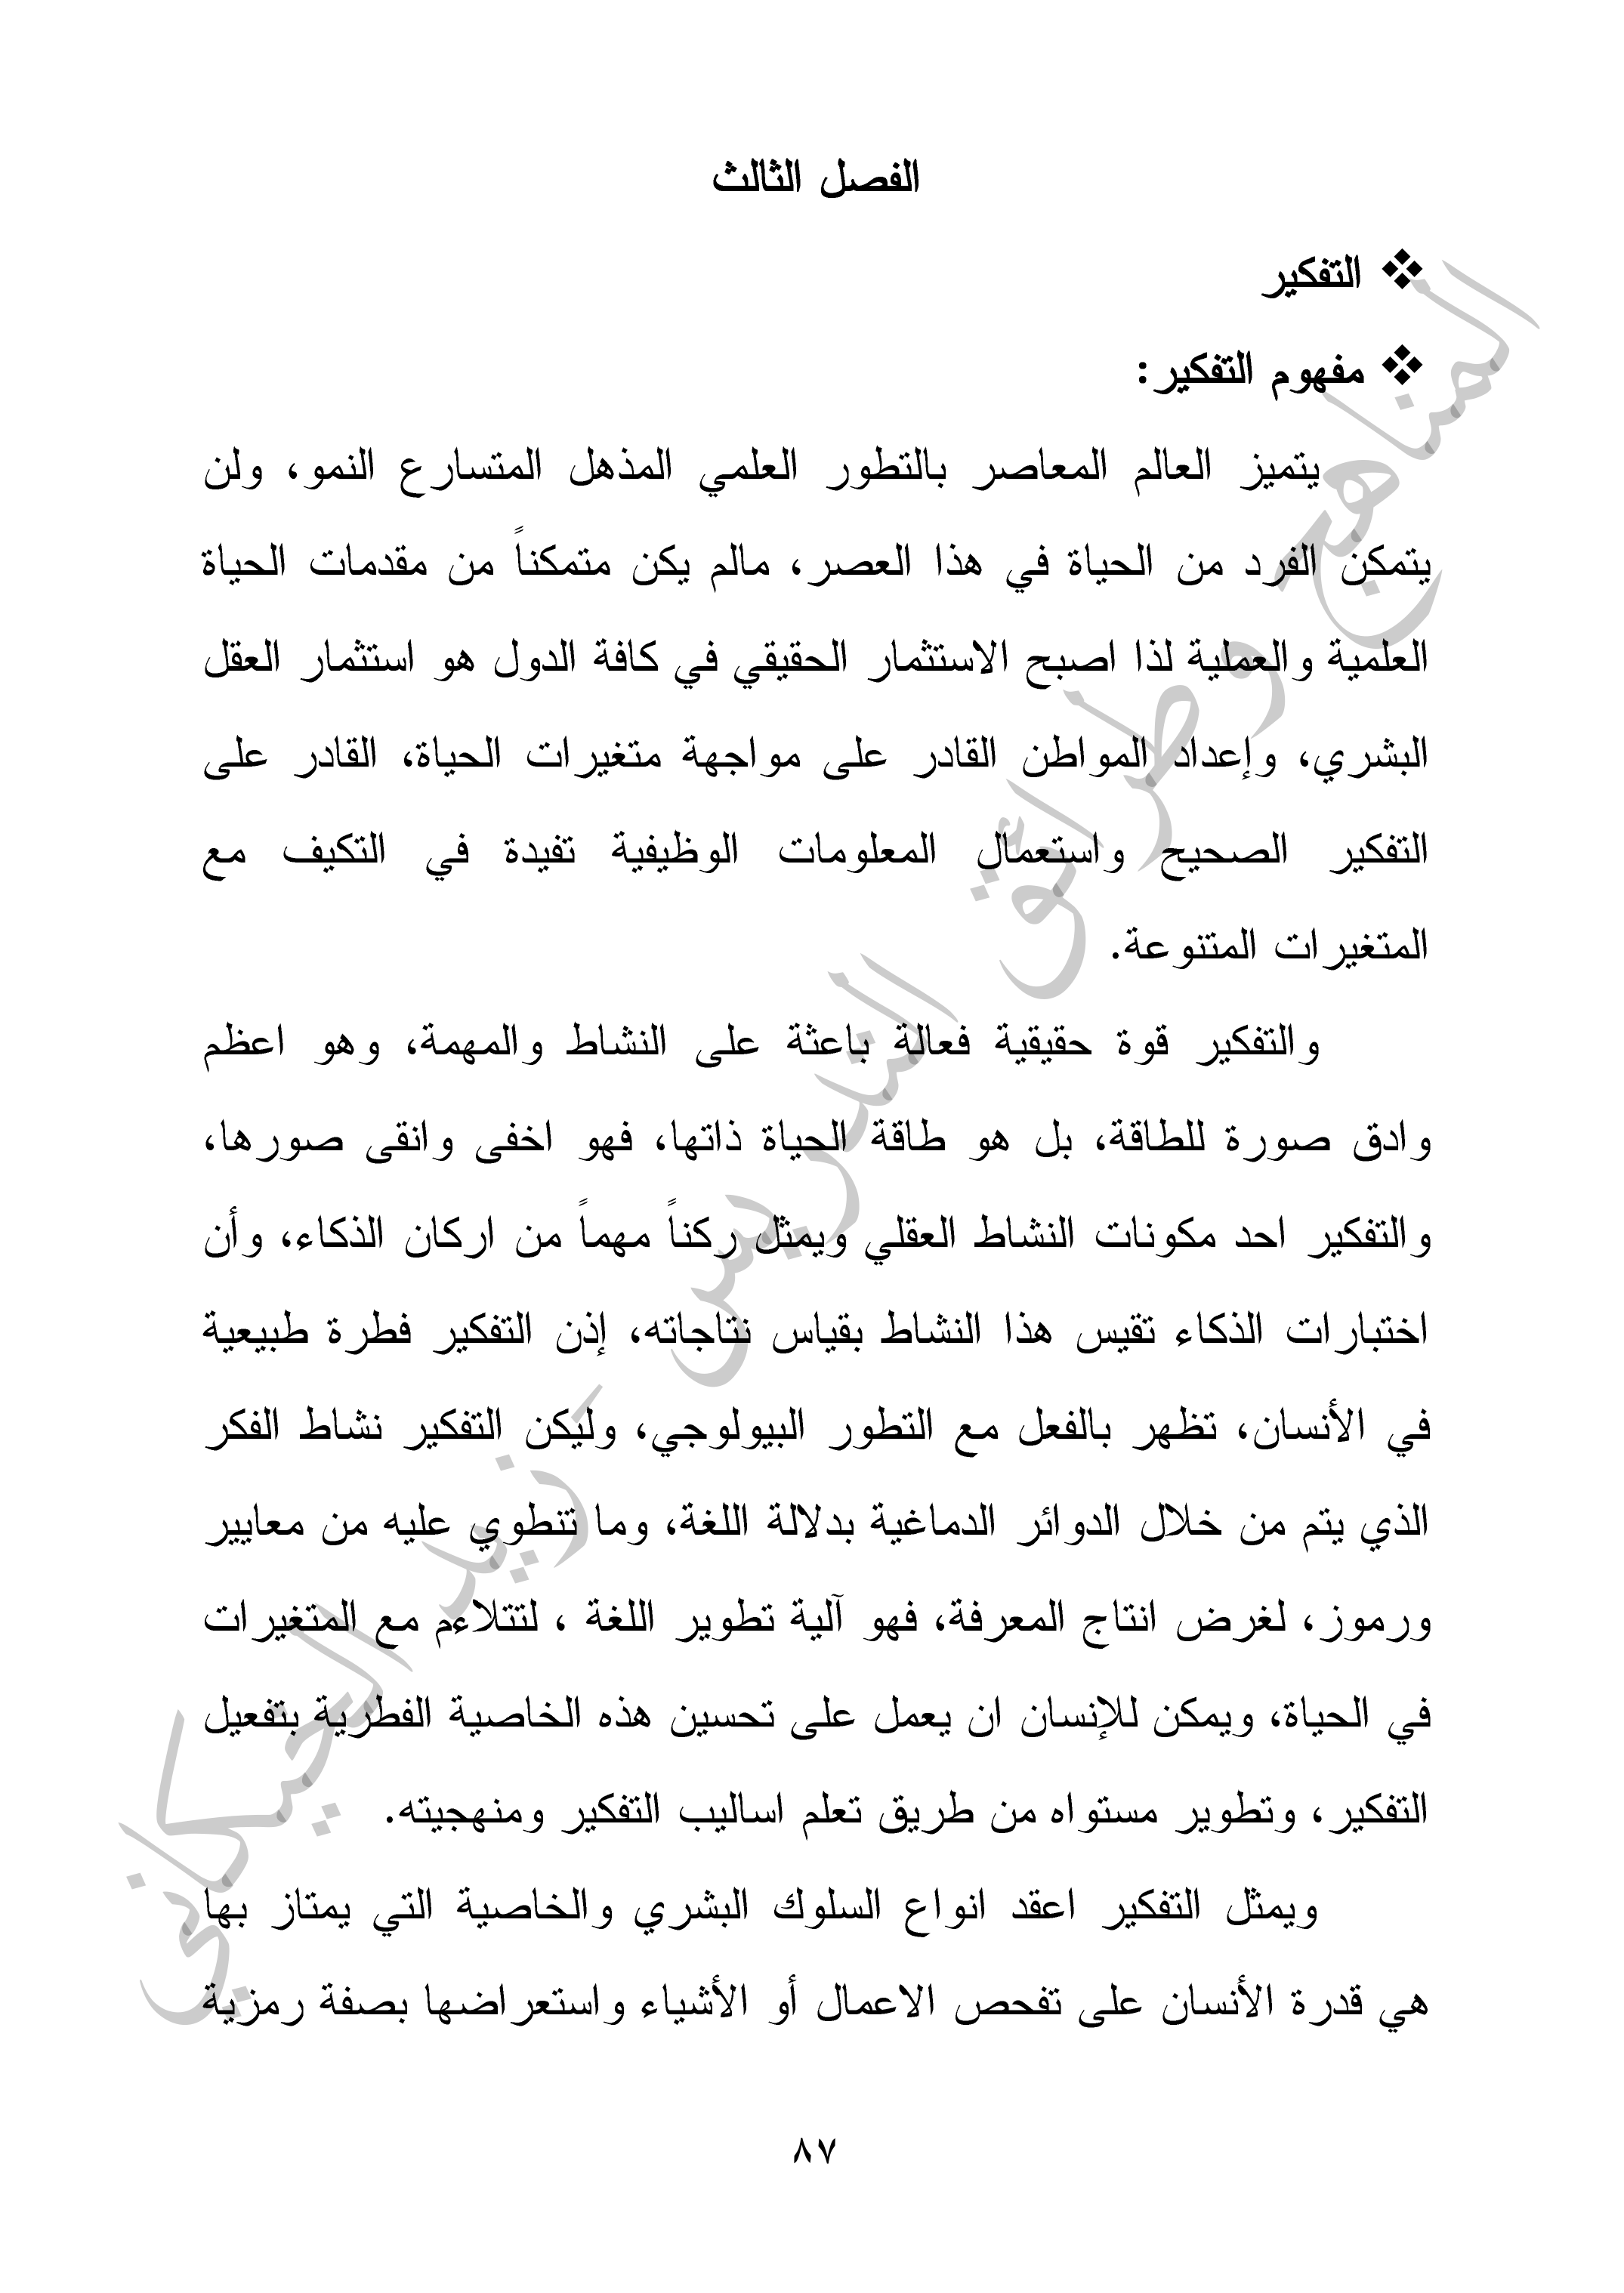 الفصل الثالث
❖ التفكير
❖ مفهوم التفكير:
يتميز العالم المعاصر بالتطور العلمي المذهل المتسارع النمو، ولن
يتمكن الفرد من الحياة في هذا العصر، مالم يكن متمكناً من مقدمات الحياة
العلمية والعملية لذا اصبح الاستثمار الحقيقي في كافة الدول هو استثمار العقل
البشري، وإعداد المواطن القادر على مواجهة متغيرات الحياة، القادر على
التفكير الصحيح واستعمال المعلومات الوظيفية تفيدة في التكيف مع
المتغيرات المتنوعة.
والتفكير قوة حقيقية فعالة باعثة على النشاط والمهمة، وهو اعظم
وادق صورة للطاقة، بل هو طاقة الحياة ذاتها، فهو اخفى وانقى صورها،
والتفكير احد مكونات النشاط العقلي ويمثل ركناً مهماً من اركان الذكاء، وأن
اختبارات الذكاء تقيس هذا النشاط بقياس نتاجاته، إذن التفكير فطرة طبيعية
في الأنسان، تظهر بالفعل مع التطور البيولوجي، وليكن التفكير نشاط الفكر
الذي يتم من خلال الدوائر الدماغية بدلالة اللغة، وما تنطوي عليه من معايير
ورموز، لغرض انتاج المعرفة، فهو آلية تطوير اللغة ، لتتلاءم مع المتغيرات
في الحياة، ويمكن للإنسان ان يعمل على تحسين هذه الخاصية الفطرية بتفعيل
التفكير، وتطوير مستواه من طريق تعلم اساليب التفكير ومنهجيته.
ويمثل التفكير اعقد انواع السلوك البشري والخاصية التي يمتاز بها
هي قدرة الأنسان على تفحص الاعمال أو الأشياء واستعراضها بصفة رمزية
٨٧
المناهج وطرائق التدريس – زيد الحيكاني